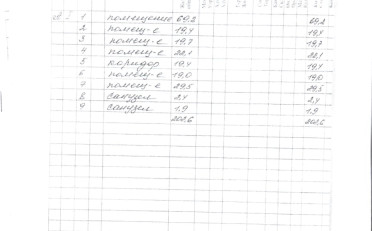 1 помещение 69,2 69,2
2 помещ-е 19,4 19,4
3 помещ-е 19,7 19,7
4 помещ-е 22,1 22,1
5 коридор 19,4 19,4
6 помещ-е 19,0 19,0
7 помещ-е 29,5 29,5
8 санузел 2,4 2,4
9 санузел 1,9 1,9
202,6 202,6